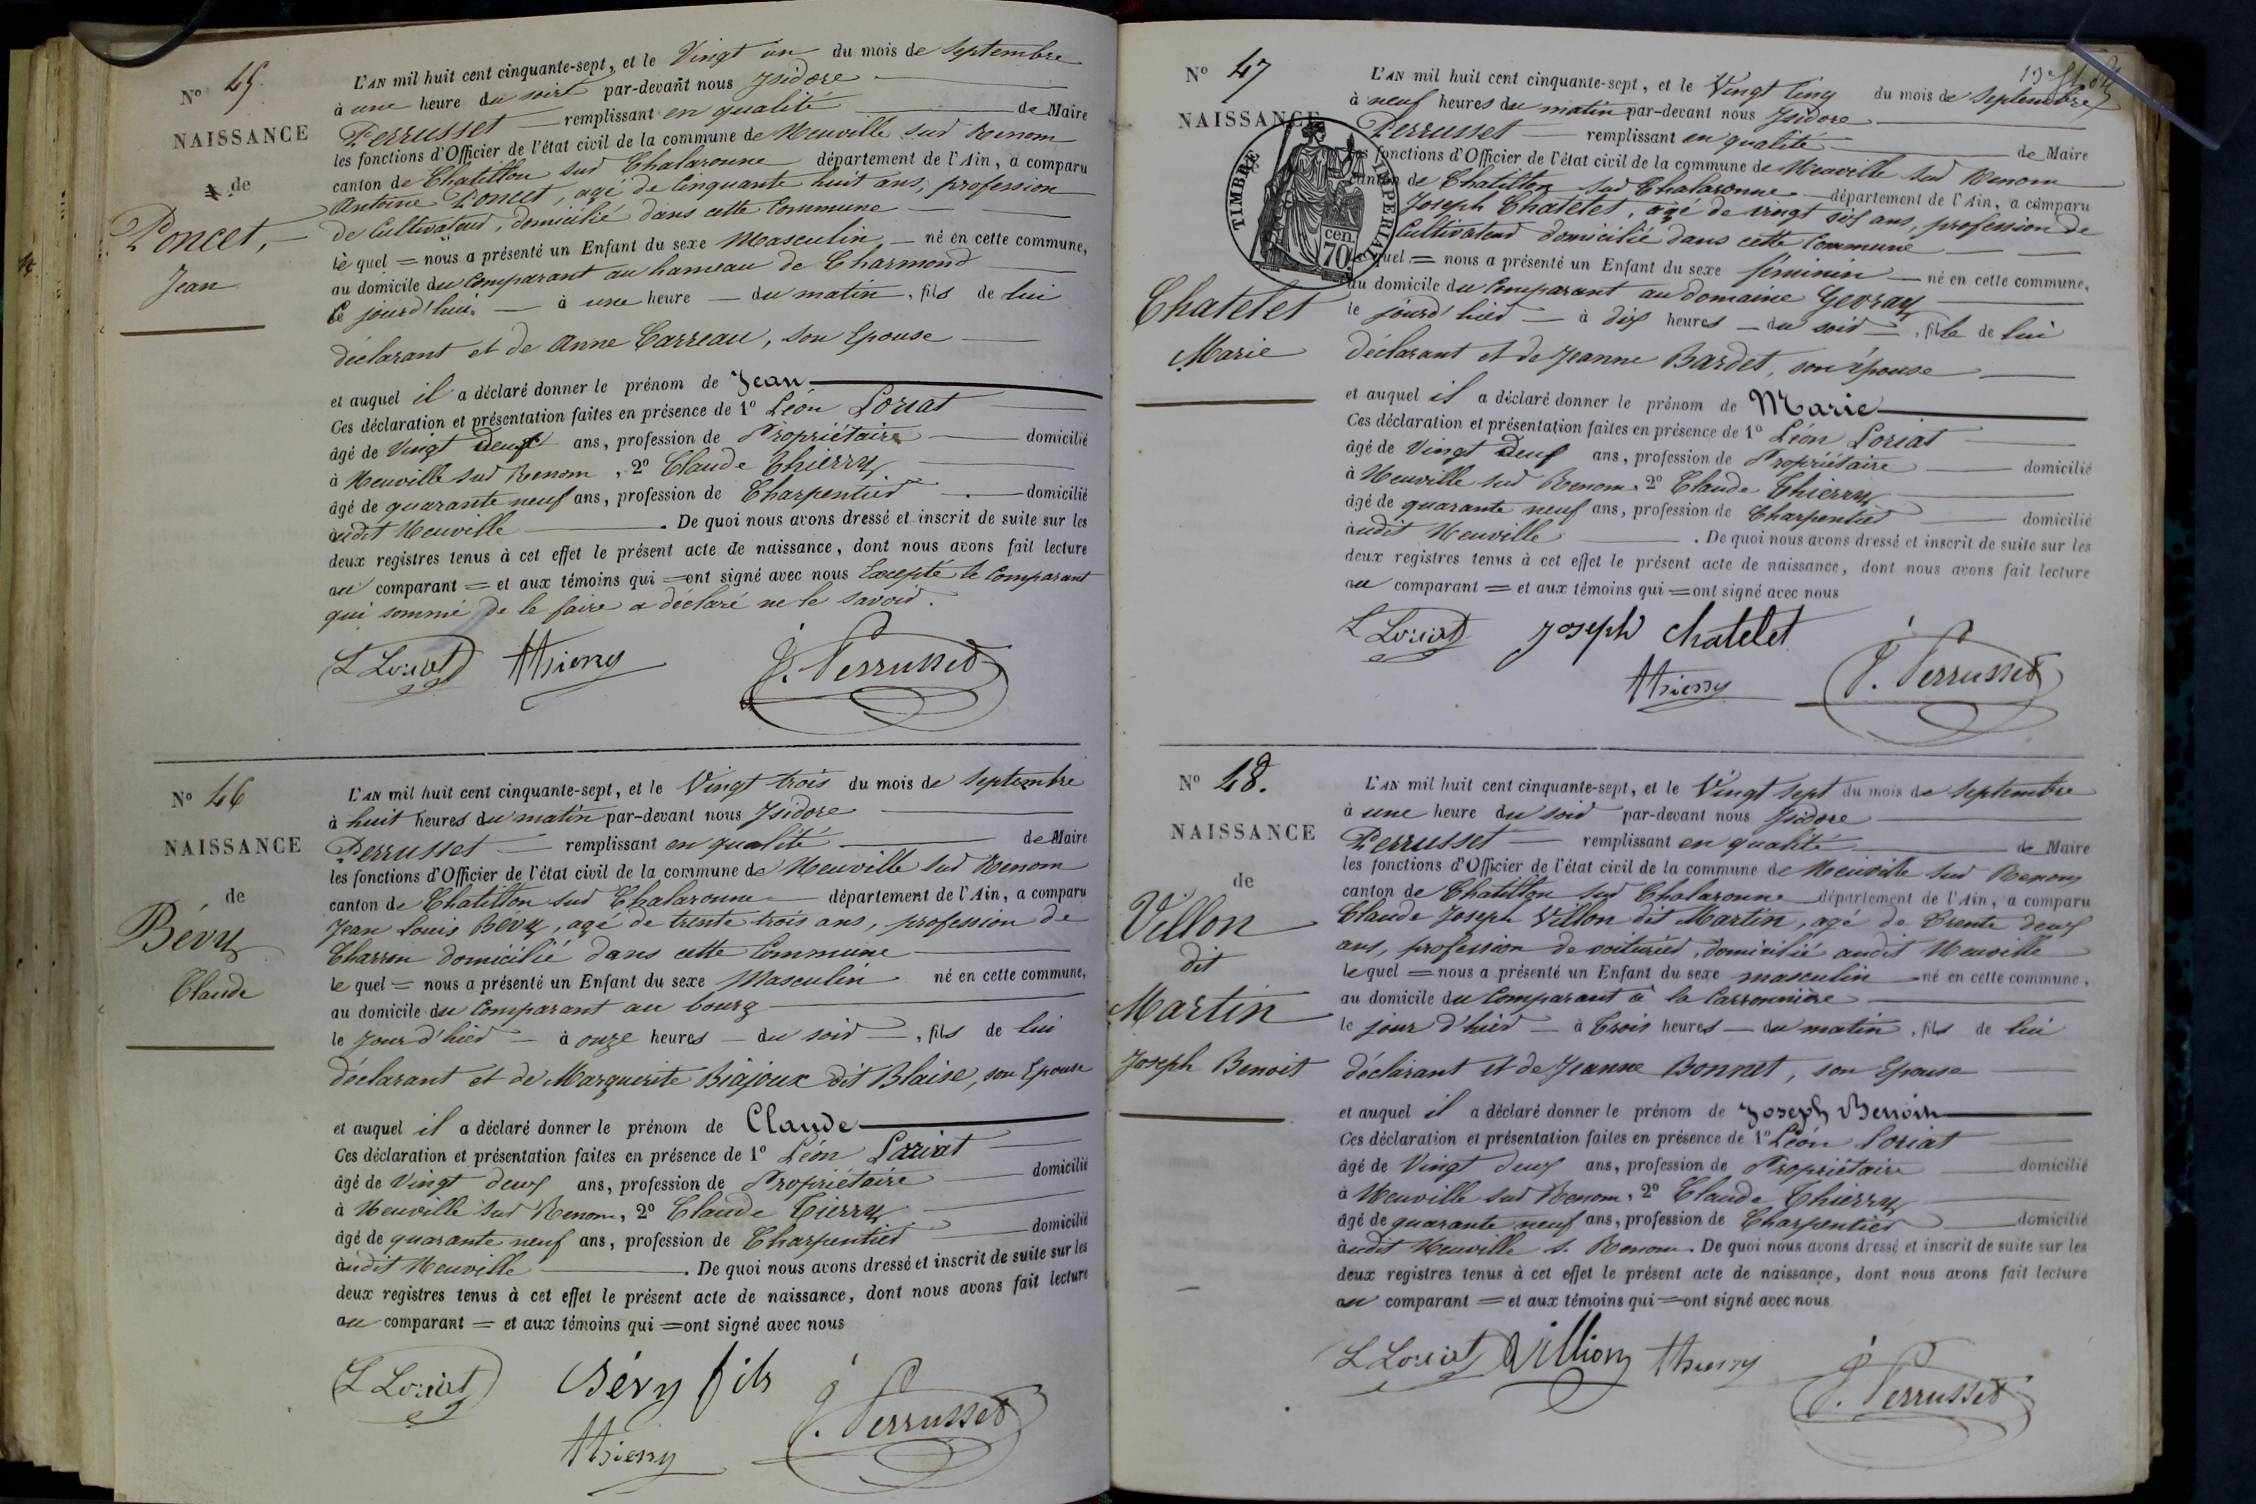 N° 45.
NAISSANCE
de
Poncet,
Jean
L'AN mil huit cent cinquante-sept, et le Vingt un du mois de Septembre
à une heure du soir par-devant nous Isidore
Perrusset remplissant en qualité de Maire
les fonctions d'Officier de l'état civil de la commune de Neuville sur Renom
canton de Chatillon sur Chalaronne département de l'Ain, a comparu
Antoine Poncet, agé de Cinquante huit ans, profession
de Cultivateur, domicilié dans cette Commune
le quel = nous a présenté un Enfant du sexe Masculin né en cette commune,
au domicile du Comparant au hameau de Charmond
Ce jourd'hui à une heure du matin, fils de lui
déclarant et de Anne Carreau, son Epouse
et auquel il a déclaré donner le prénom de Jean
Ces déclaration et présentation faites en présence de 1° Léon Loriat
âgé de Vingt Deux ans, profession de Propriétaire domicilié
à Neuville sur Renom, 2° Claude Thierry
âgé de quarante neuf ans, profession de Charpentier domicilié
audit Neuville. De quoi nous avons dressé et inscrit de suite sur les
deux registres tenus à cet effet le présent acte de naissance, dont nous avons fait lecture
au comparant = et aux témoins qui = ont signé avec nous Excepté le Comparant
qui sommé de le faire a déclaré ne le savoir.
L Loriat Thierry J. Perrusset
N° 46
NAISSANCE
de
Bévy
Claude
L'AN mil huit cent cinquante-sept, et le Vingt trois du mois de Septembre
à huit heures du matin par-devant nous Isidore
Perrusset remplissant en qualité de Maire
les fonctions d'Officier de l'état civil de la commune de Neuville sur Renom
canton de Chatillon sur Chalaronne département de l'Ain, a comparu
Jean Louis Bévy, agé de trente trois ans, profession de
Charron domicilié dans cette Commune
le quel = nous a présenté un Enfant du sexe Masculin né en cette commune,
au domicile du Comparant au bourg
le Jour d'hier à onze heures du soir, fils de lui
déclarant et de Marguerite Biajoux dit Blaise, son Epouse
et auquel il a déclaré donner le prénom de Claude
Ces déclaration et présentation faites en présence de 1° Léon Loriat
âgé de Vingt deux ans, profession de Propriétaire domicilié
à Neuville sur Renom, 2° Claude Tierry
âgé de quarante neuf ans, profession de Charpentier domicilié
audit Neuville. De quoi nous avons dressé et inscrit de suite sur les
deux registres tenus à cet effet le présent acte de naissance, dont nous avons fait lecture
au comparant = et aux témoins qui = ont signé avec nous
L Loriat Bévy fils
Thierry J. Perrusset
N° 47
NAISSANCE
TIMBRE IMPERIAL
70 cen.
Chatelet
Marie
L'AN mil huit cent cinquante-sept, et le Vingt Cinq du mois de Septembre
à neuf heures du matin par-devant nous Isidore
Perrusset remplissant en qualité de Maire
les fonctions d'Officier de l'état civil de la commune de Neuville sur Renom
canton de Chatillon sur Chalaronne département de l'Ain, a comparu
Joseph Chatelet, agé de vingt six ans, profession de
Cultivateur domicilié dans cette Commune
le quel = nous a présenté un Enfant du sexe féminin né en cette commune,
au domicile du Comparant au domaine Gevray
le jourd'hier à dix heures du soir, fille de lui
déclarant et de Jeanne Bardet, son épouse
et auquel il a déclaré donner le prénom de Marie
Ces déclaration et présentation faites en présence de 1° Léon Loriat
âgé de Vingt Deux ans, profession de Propriétaire domicilié
à Neuville sur Renom. 2° Claude Thierry
âgé de quarante neuf ans, profession de Charpentier domicilié
audit Neuville. De quoi nous avons dressé et inscrit de suite sur les
deux registres tenus à cet effet le présent acte de naissance, dont nous avons fait lecture
au comparant = et aux témoins qui = ont signé avec nous
L Loriat Joseph Chatelet
Thierry J. Perrusset
N° 48.
NAISSANCE
de
Villon
dit
Martin
Joseph Benoit
L'AN mil huit cent cinquante-sept, et le Vingt sept du mois de Septembre
à une heure du soir par-devant nous Isidore
Perrusset remplissant en qualité de Maire
les fonctions d'Officier de l'état civil de la commune de Neuville sur Renom
canton de Chatillon sur Chalaronne département de l'Ain, a comparu
Claude Joseph Villon dit Martin, agé de Trente deux
ans, profession de voiturier, domicilié audit Neuville
le quel = nous a présenté un Enfant du sexe masculin né en cette commune,
au domicile du Comparant à la Carronnière
le jour d'hier à Trois heures du matin, fils de lui
déclarant et de Jeanne Bonnet, son Epouse
et auquel il a déclaré donner le prénom de Joseph Benoit
Ces déclaration et présentation faites en présence de 1° Léon Loriat
âgé de Vingt deux ans, profession de Propriétaire domicilié
à Neuville sur Renom, 2° Claude Thierry
âgé de quarante neuf ans, profession de Charpentier domicilié
audit Neuville s. Renom. De quoi nous avons dressé et inscrit de suite sur les
deux registres tenus à cet effet le présent acte de naissance, dont nous avons fait lecture
au comparant = et aux témoins qui = ont signé avec nous
L Loriat Villion Thierry
J. Perrusset